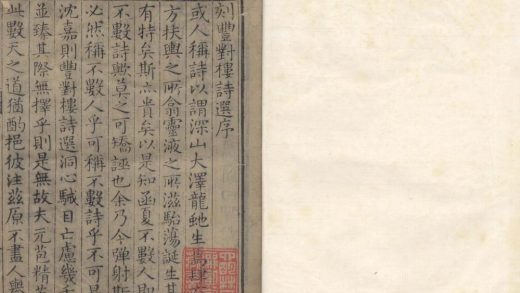 刻豐對樓詩選序
或人稱詩以謂深山大澤龍虵生焉肆
方扶輿之所翕靈液之所滋駘蕩誕生其
有特矣斯六貴矣以是知函夏不數人即
不數詩歟莫之可矯誣也余乃今彈射斯
必然稱不數人乎可稱不數詩乎不可是
沈嘉則豐對樓詩選洞心駴目亡慮幾千
並臻其際無擇乎則是無故夫元苞精
此數天之道猶酌挹彼注茲原不盡人與